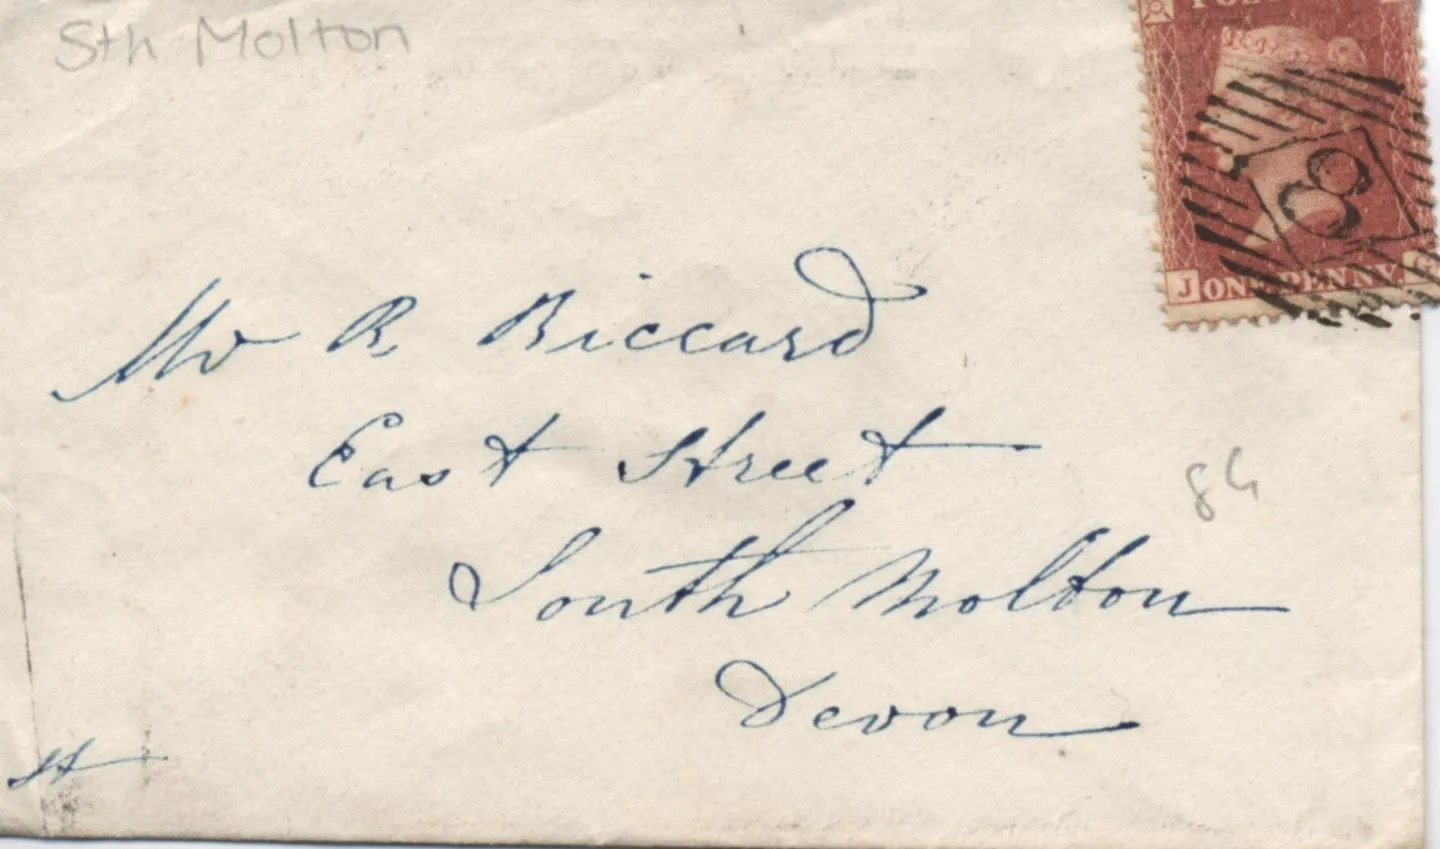 Sth Molton
J ONE PENNY G
8
Mr R. Biccard
East Street
South Molton
Devon